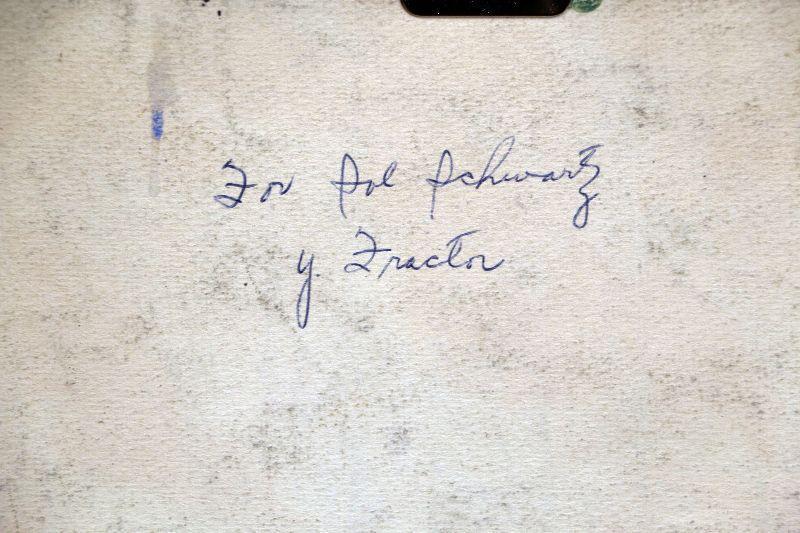 For Sol Schwartz
y. Fractor